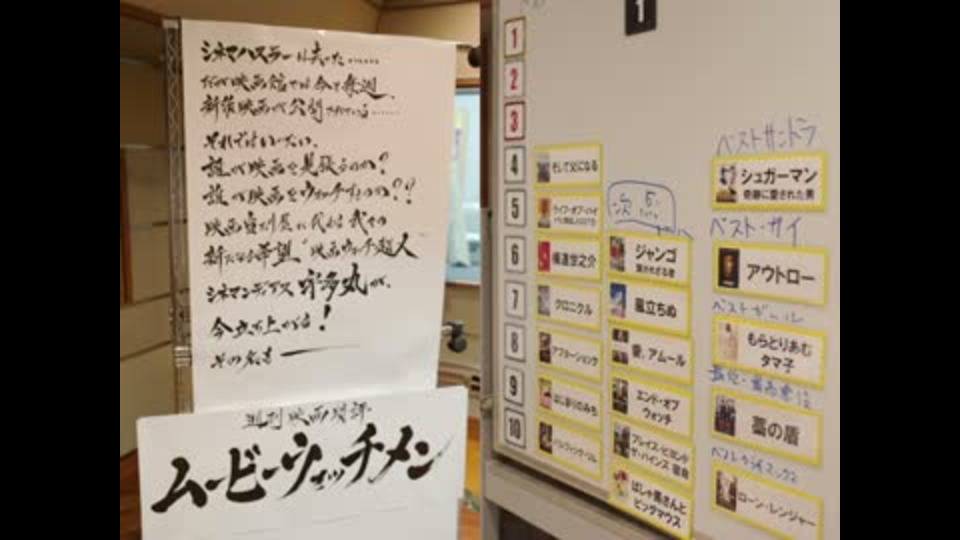 シネマハスラーは去った……
だが映画館では今も毎週、
新作映画が公開されている……
それではいったい、
誰が映画を見張るのか?
誰が映画をウォッチするのか??
映画
新たなる希望 "映画ウォッチ超人
シネマンディアス 宇多丸が、
今立ち上がる!
その名も――
週刊映画時評
ムービーウォッチメン
1
1
2
3
4
5
6
7
8
9
10
そして父になる
ライフ・オブ・パイ
横道世之介
クロニクル
アフターショック
はじまりのみち
パシフィック・リム
次点
ジャンゴ
繋がれざる者
風立ちぬ
愛、アムール
エンド・オブ
ウォッチ
プレイス・ビヨンド
ザ・パインズ 宿命
はじゃ馬さんと
ビッグマウス
ベストサントラ
シュガーマン
奇跡に愛された男
ベスト・ガイ
アウトロー
ベストガール
もらとりあむ
タマ子
藁の盾
ベストクライマックス
ローン・レンジャー